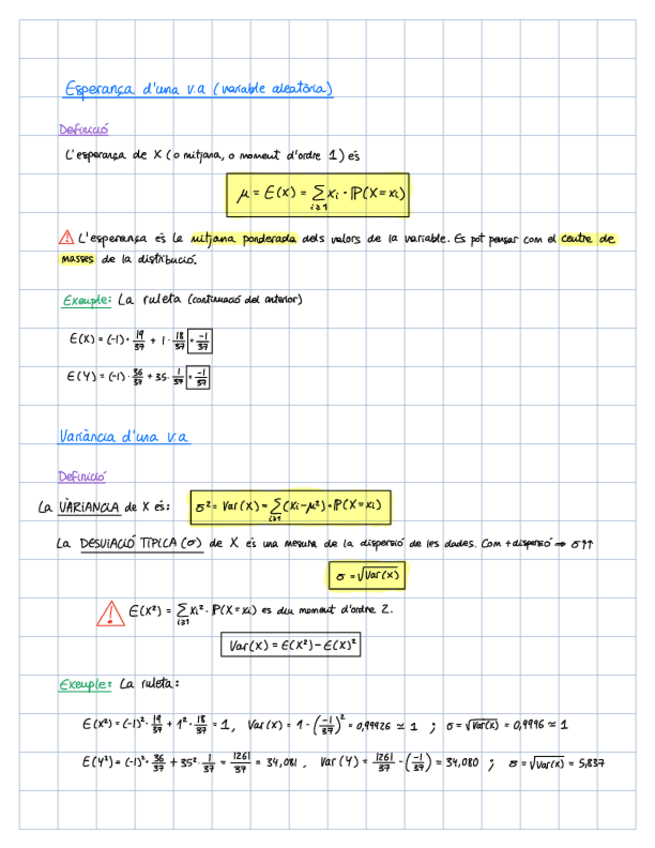 Esperança d'una v.a (variable aleatòria)
Definició
L'esperança de X (o mitjana, o moment d'ordre 1) és
μ = E(X) = Σ_{i≥1} xi · P(X=xi)
⚠ L'esperança és la mitjana ponderada dels valors de la variable. Es pot pensar com el centre de
masses de la distribució.
Exemple: La ruleta (continuació del anterior)
E(X) = (-1)· 19/37 + 1 · 18/37 = -1/37
E(Y) = (-1) · 36/37 + 35 · 1/37 = -1/37
Variància d'una v.a
Definició
La VÀRIANCIA de X és: σ² = Var(X) = Σ_{i≥1} (xi-μ²) · P(X=xi)
La DESVIACIÓ TÍPICA (σ) de X és una mesura de la dispersió de les dades. Com + dispersió ⇒ σ↑↑
σ = √Var(X)
⚠ E(X²) = Σ_{i≥1} xi² · P(X=xi) es diu moment d'ordre 2.
Var(X) = E(X²) - E(X)²
Exemple: La ruleta:
E(X²) = (-1)² · 19/37 + 1² · 18/37 = 1, Var(X) = 1 - (-1/37)² = 0,99926 ≃ 1 ; σ = √Var(X) = 0,9996 ≃ 1
E(Y²) = (-1)² · 36/37 + 35² · 1/37 = 1261/37 = 34,081 . Var(Y) = 1261/37 - (-1/37) = 34,080 ; σ = √Var(X) = 5,837